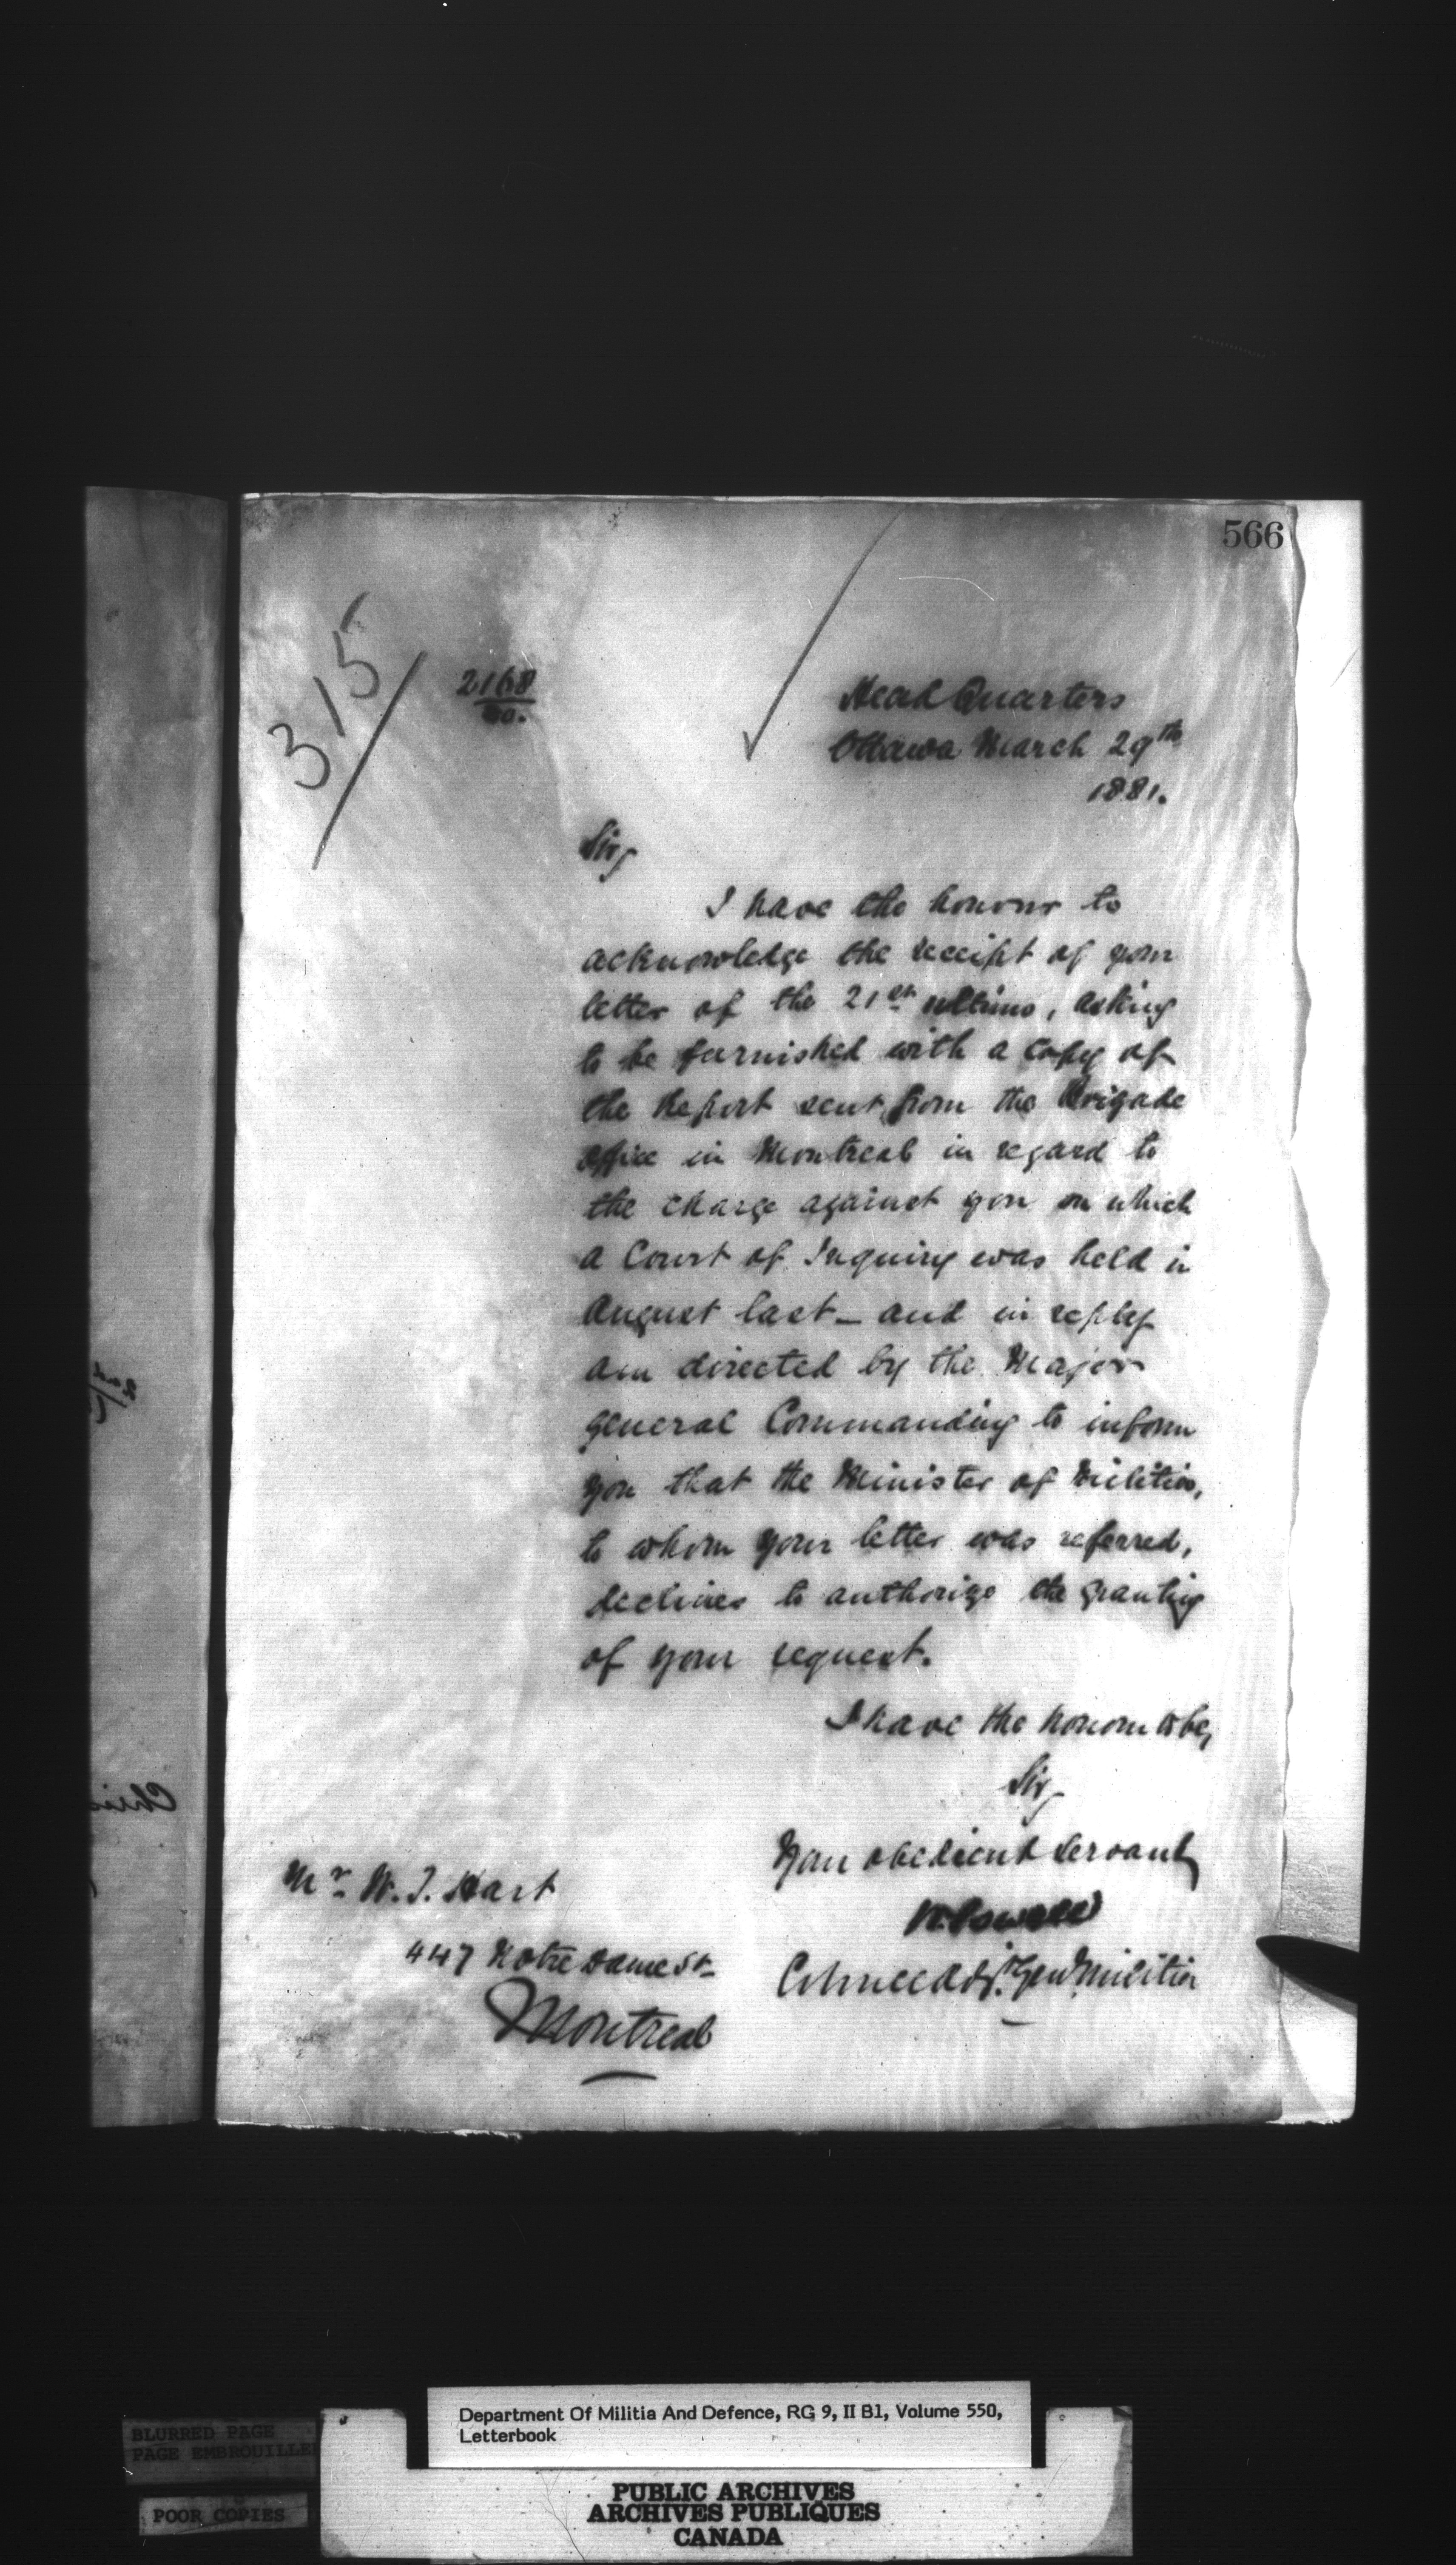 566
315
2168
80.
Head Quarters
Ottawa March 29th
1881.
Sir,
I have the honour to
acknowledge the receipt of your
letter of the 21st ultimo, asking
to be furnished with a copy of
the Report sent from the Brigade
office in Montreal in regard to
the charge against you on which
a Court of Inquiry was held in
August last — and in reply
am directed by the Major
General Commanding to inform
you that the Minister of Militia,
to whom your letter was referred,
declines to authorize the granting
of your request.
I have the honour to be,
Sir,
Your obedient servant,
W. Powell
Colonel Adjt. Genl. Militia
Mr. W. J. Hart
447 Notre Dame St.
Montreal
Department Of Militia And Defence, RG 9, II B1, Volume 550,
Letterbook
BLURRED PAGE
PAGE EMBROUILLE
POOR COPIES
PUBLIC ARCHIVES
ARCHIVES PUBLIQUES
CANADA